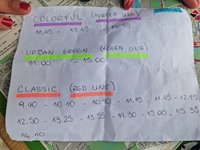 COLORFUL (PURPLE LINE)
11.45 - 13.45 - 15.45
URBAN GREEN (GREEN LINE)
11.00 15.00
CLASSIC (RED LINE)
9.40 - 10.10 - 10.40 - 11.15 - 11.45 - 12.15
12.50 - 13.25 - 13.55 - 14.30 - 15.00 - 15.35
16.10